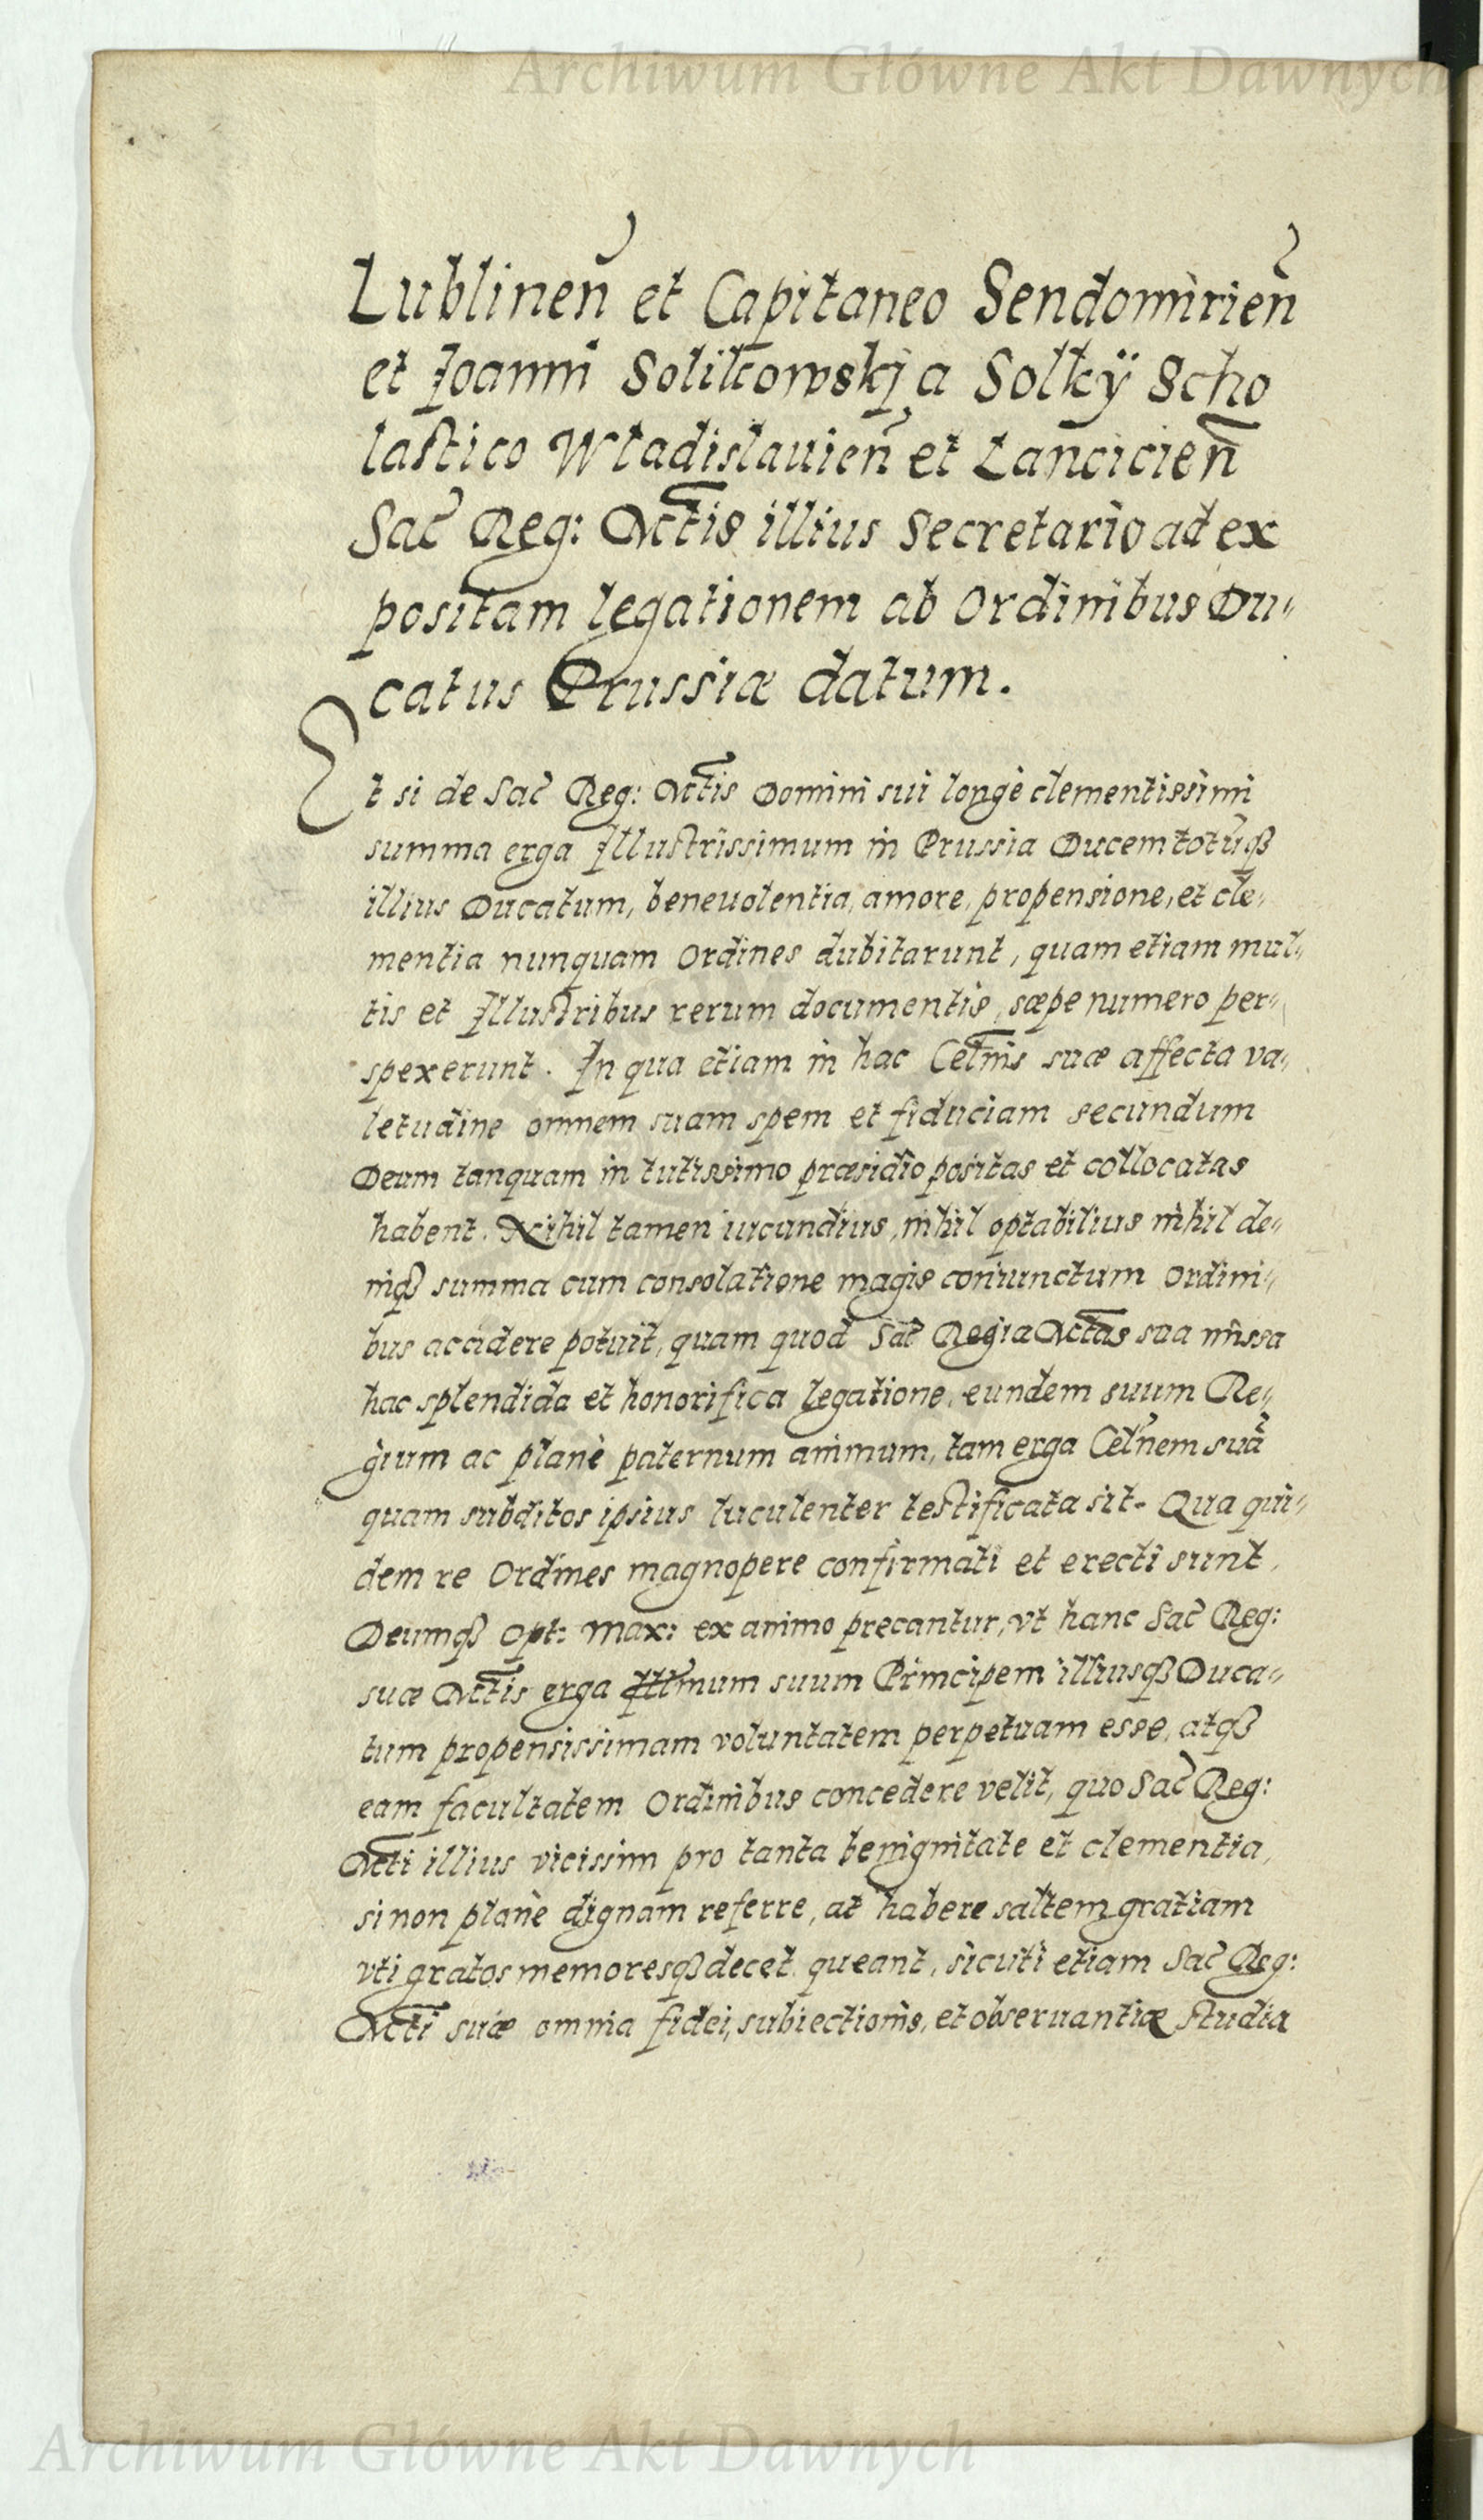 Archiwum Główne Akt Dawnych
Lublinen̄ et Capitaneo Sendomirien̄
et Joanni Solikowskj a Solkÿ Scho
lastico Wladislauien̄ et Lancicien̄
Sac̄ Reg: Mc̄tis illius Secretario ad ex
positam legationem ab Ordinibus Du„
catus Prussiæ datum.
Et si de Sac̄ Reg: Mc̄tis Domini sui longè clementissimi
summa erga Illustrissimum in Prussia Ducem totūqꝫ
illius Ducatum, beneuolentia, amore, propensione, et cle„
mentia nunquam Ordines dubitarunt, quam etiam mul„
tis et Illustribus rerum documentis, sæpe numero per„
spexerunt. In qua etiam in hac Cel̄nis suæ affecta va„
letudine omnem suam spem et fiduciam secundum
Deum tanquam in tutissimo præsidio positas et collocatas
habent. Nihil tamen iucundius, nihil optabilius nihil de„
niqꝫ summa cum consolatione magis coniunctum Ordini„
bus accidere potuit, quam quod Sac̄ Regia Mc̄tas sua missa
hac splendida et honorifica legatione, eundem suum Re„
gium ac planè paternum animum, tam erga Cel̄nem suā
quam subditos ipsius luculenter testificata sit. Qua qui„
dem re Ordines magnopere confirmati et erecti sunt.
Deumqꝫ Opt: Max: ex animo precantur, vt hanc Sac̄ Reg:
suæ Mc̄tis erga Ill̄mum suum Principem illiusqꝫ Duca„
tum propensissimam voluntatem perpetuam esse, atqꝫ
eam facultatem Ordinibus concedere velit, quo Sac̄ Reg:
Mc̄ti illius vicissim pro tanta benignitate et clementia,
si non planè dignam referre, at habere saltem gratiam
vti gratos memoresqꝫ decet queant, sicuti etiam Sac̄ Reg:
Mc̄ti suæ omnia fidei, subiectionis, et obseruantiæ studia
Archiwum Główne Akt Dawnych